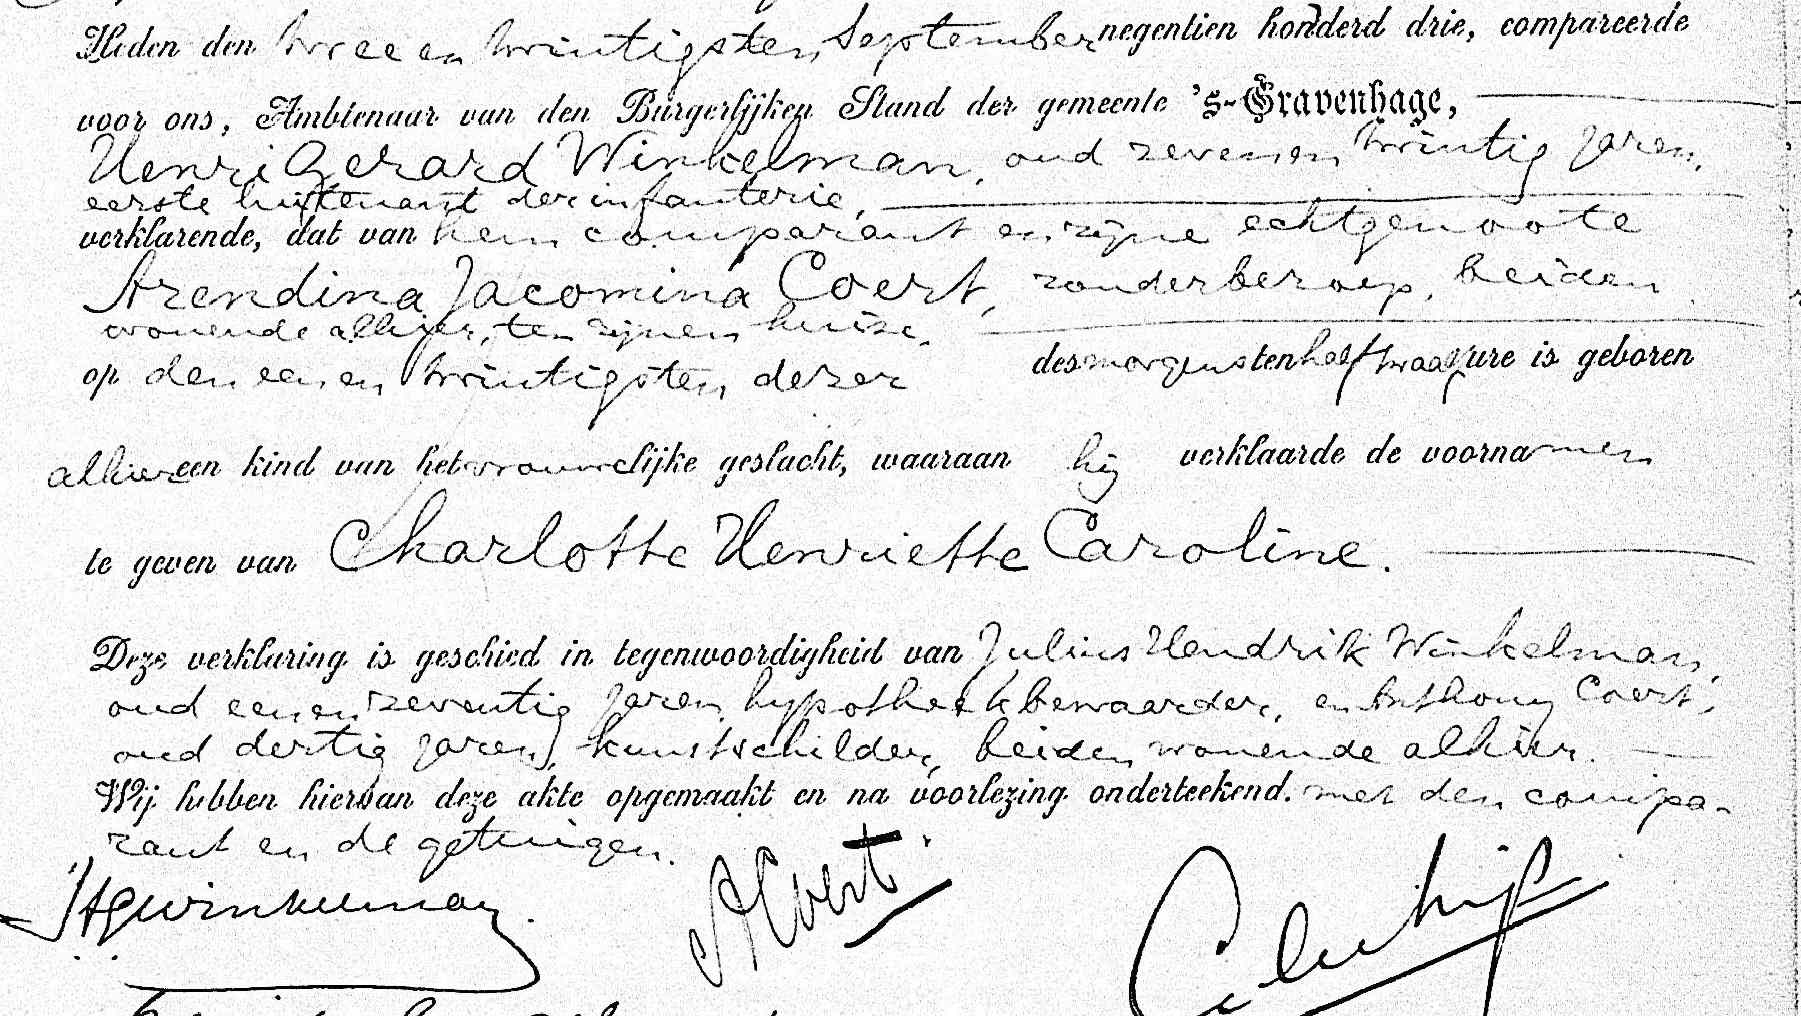 Heden den twee en twintigsten September negentien honderd drie, compareerde
voor ons, Ambtenaar van den Burgerlijken Stand der gemeente 's-Gravenhage,
Henri Gerard Winkelman, oud zeven en twintig jaren,
eerste luitenant der infanterie,
verklarende, dat van hem comparant en zijne echtgenoote
Arendina Jacomina Coert, zonder beroep, beiden
wonende alhier, ten zijnen huize,
op den een en twintigsten dezer des morgens ten half twaalf ure is geboren
alhier een kind van het vrouwelijke geslacht, waaraan hij verklaarde de voornamen
te geven van Charlotte Henriette Caroline.
Deze verklaring is geschied in tegenwoordigheid van Julius Hendrik Winkelman,
oud een en zeventig jaren, hypotheekbewaarder, en Anthony Coert,
oud dertig jaren, kunstschilder, beiden wonende alhier.
Wij hebben hiervan deze akte opgemaakt en na voorlezing onderteekend. met den compa-
rant en de getuigen.
HGWinkelman. ACoert